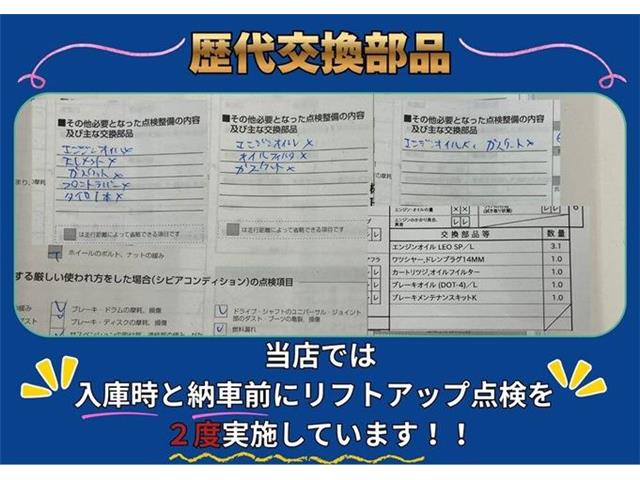 歴代交換部品
■その他必要となった点検整備の内容
及び主な交換部品
エンジンオイル×
エレメント×
ガスケット×
フロントラバー×
タイロ1本×
は走行距離によって省略できる項目です
ホイールのボルト、ナットの緩み
■その他必要となった点検整備の内容
及び主な交換部品
エンジンオイル×
オイルフィルタ×
ガスケット×
は走行距離によって省略できる項目です
■その他必要となった点検整備の内容
及び主な交換部品
ガスケット×
する厳しい使われ方をした場合(シビアコンディション)の点検項目
ブレーキ・ドラムの摩耗、損傷
ブレーキ・ディスクの摩耗、損傷
ドライブ・シャフトのユニバーサル・ジョイント
部のダスト・ブーツの亀裂、損傷
燃料漏れ
交換部品等 数量
エンジンオイル LEO SP/L 3.1
ワッシャー,ドレンプラグ14MM 1.0
カートリッジ,オイルフイルター 1.0
ブレーキオイル (DOT-4)/L 1.0
ブレーキメンテナンスキットK 1.0
当店では
入庫時と納車前にリフトアップ点検を
２度実施しています！！